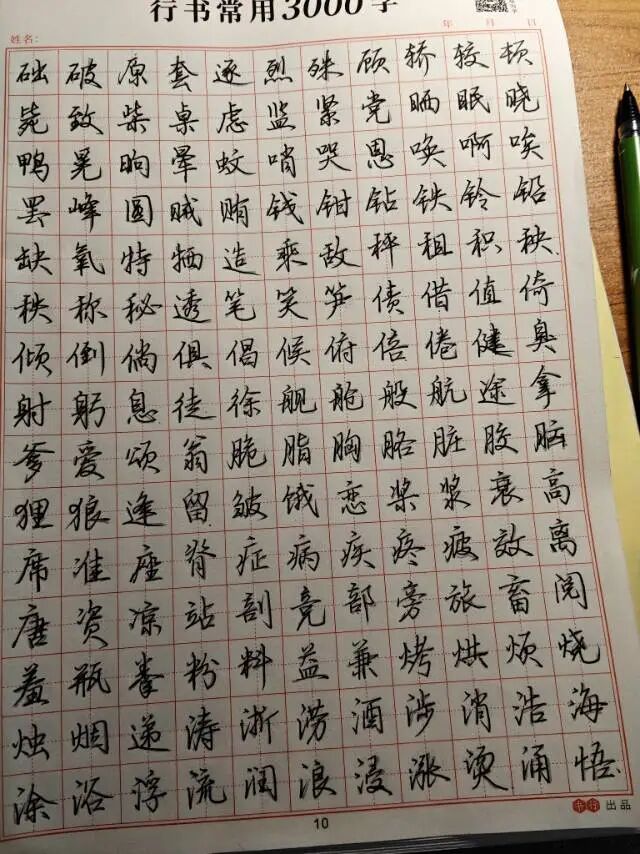 行书常用3000字
姓名: 年 月 日
础破原套逐烈殊顾轿较顿
毙致柴桌虑监紧党晒眠晓
鸭晃晌晕蚊哨哭恩唤啊唉
罢峰圆贼贿钱钳钻铁铃铅
缺氧特牺造乘敌秤租积秧
秩称秘透笔笑笋债借值倚
倾倒倘俱倡候俯倍倦健臭
射躬息徒徐舰舱般航途拿
爹爱颂翁脆脂胸胳脏胶脑
狸狼逢留皱饿恋桨浆衰高
席准座脊症病疾疼疲效离
唐资凉站剖竞部旁旅畜阅
羞瓶拳粉料益兼烤烘烦烧
烛烟递涛浙涝酒涉消浩海
涂浴浮流润浪浸涨烫涌悟
出品
10